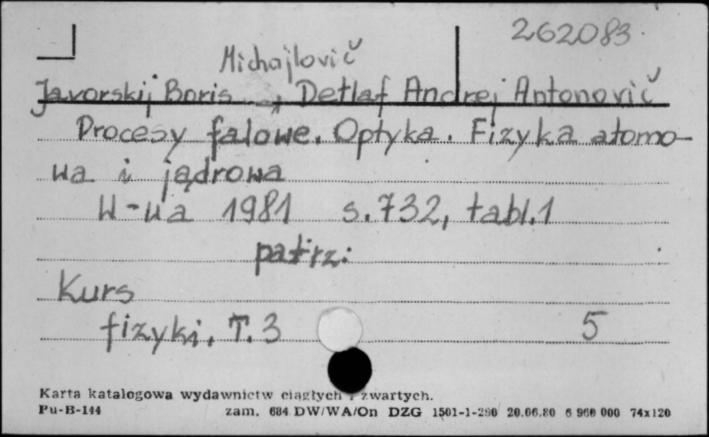 262083
Michajlovič
Javorskij Boris , Detlaf Andrej Antonovič
Procesy falowe. Optyka. Fizyka atomo-
wa i jądrowa
W-wa 1981 s. 732, tabl. 1
patrz:
Kurs
fizyki. T. 3 5
Karta katalogowa wydawnictw ciągłych i zwartych.
Pu-B-144 zam. 684 DW/WA/On DZG 1501-1-280 20.06.80 6 960 000 74x120